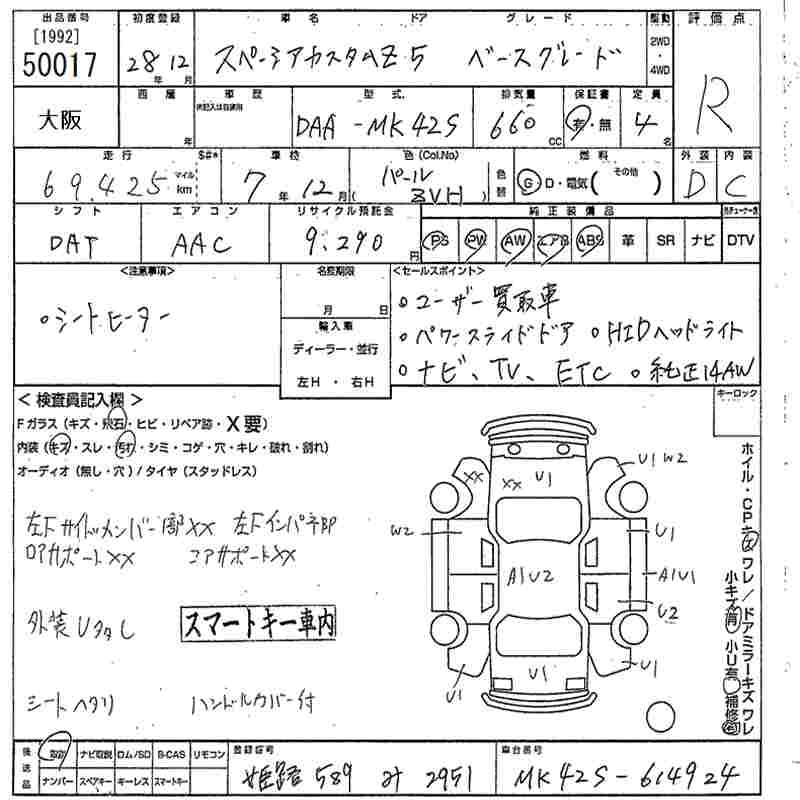 出品番号 初度登録 車名 ドア グレード 駆動 評価点
[1992]
50017 28年12月 スペーシアカスタムZ 5 ベースグレード 2WD・4WD R
西暦 車歴 型式 排気量 保証書 定員
大阪 年 DAA-MK42S 660cc 有・無 4名
走行 S#* 車検 色(Col.No) 燃料 外装 内装
69,425 マイル km 7年12月 パール ZVH 色替 G・D・電気( その他 ) D C
シフト エアコン リサイクル預託金 純正装備品
DAT AAC 9,290円 PS PW AW エアB ABS 革 SR ナビ DTV
<注意事項> 名変期限 <セールスポイント>
・シートヒーター 月 日 ・ユーザー買取車
輸入車 ・パワースライドドア ・HIDヘッドライト
ディーラー・並行 ・ナビ、TV、ETC ・純正14AW
左H・右H
<検査員記入欄> キーロック
Fガラス(キズ・飛石・ヒビ・リペア跡・X要)
内装(キズ・スレ・汚れ・シミ・コゲ・穴・キレ・破れ・割れ)
オーディオ(無し・穴)/タイヤ(スタッドレス)
XX XX U1 U1 W2
左Fサイドメンバー部XX 左Fインパネ部
コアサポートXX コアサポートXX
W2 U1
A1U2 A1U1
U2
外装Uタタし スマートキー車内
U1 U1 U1
シートヘタリ ハンドルカバー付
ホイル・CPキズワレ/ドアミラーキズワレ
小キズ有 小U有 補修有
後送品 取説 ナビ取説 ロム/SD B-CAS リモコン 登録番号 車台番号
ナンバー スペアキー キーレス スマートキー 姫路 589 み 2951 MK42S-614924